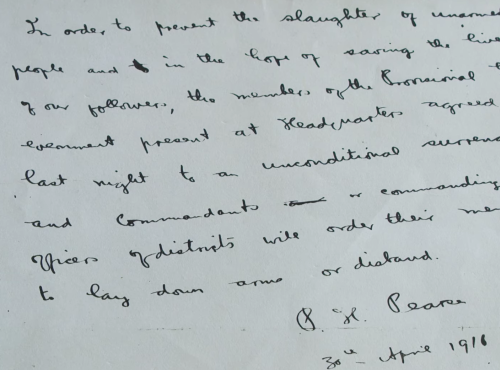 In order to prevent the slaughter of unarme
people and in the hope of saving the live
of our followers, the members of the Provisional
ernment present at Headquarters agreed
last night to an unconditional surren
and Commandants or commanding
officers of districts will order their me
to lay down arms or disband.
P. H. Pearse
30th April 1916